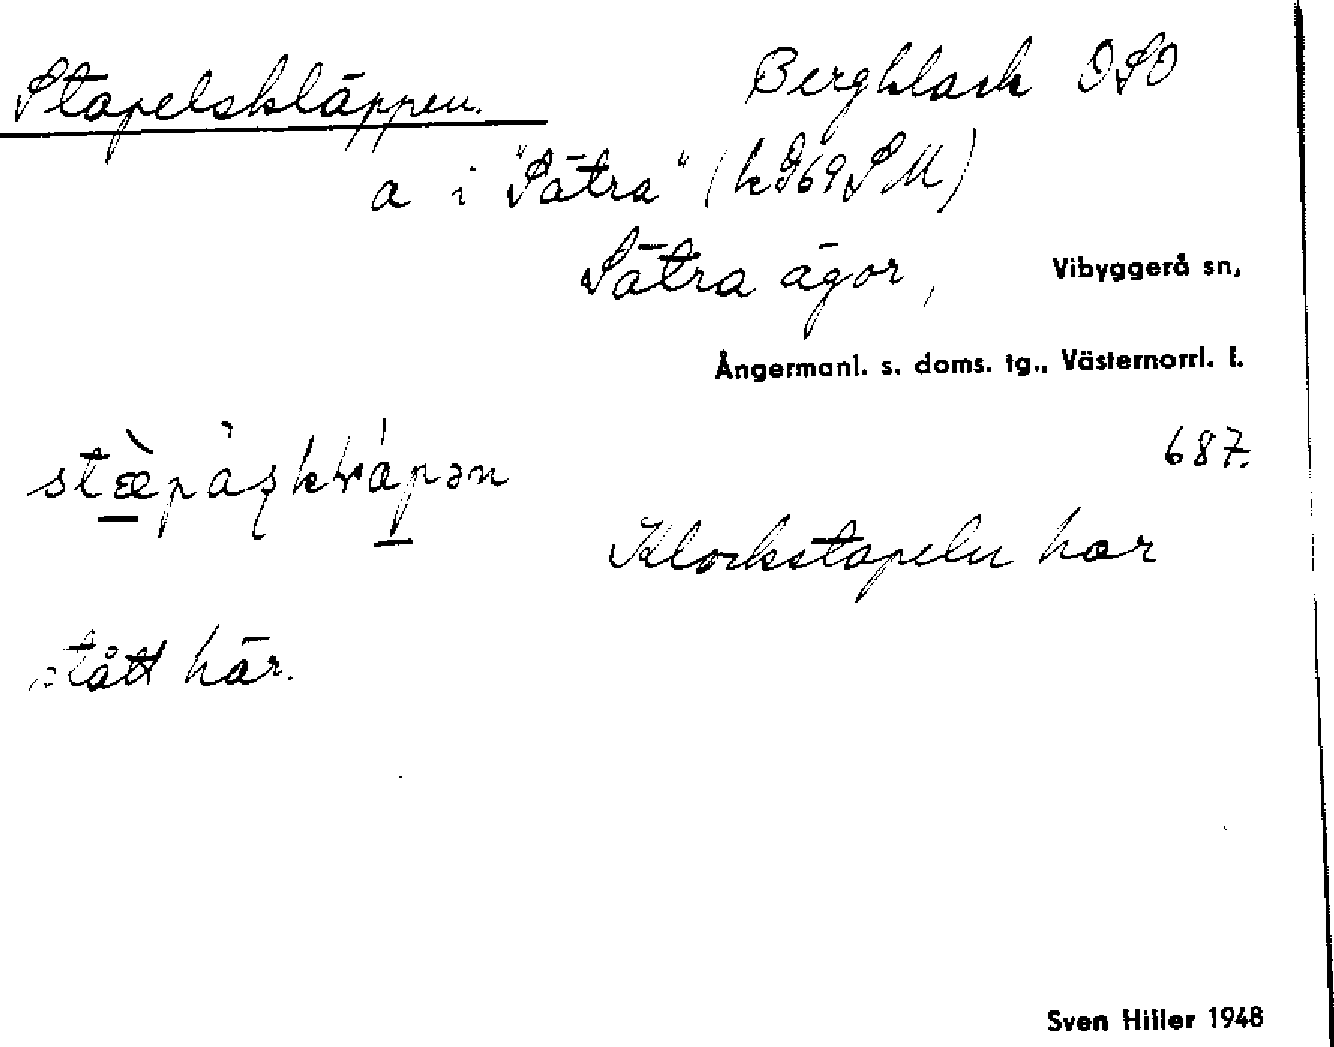 Stapelskläppen. Bergklack OSO
a i "Sätra" (k I69 S M)
Sätra ägor, Vibyggerå sn,
Ångermanl. s. doms. tg., Västernorrl. l.
687.
Klockstapeln har
stått här.
Sven Hiller 1948